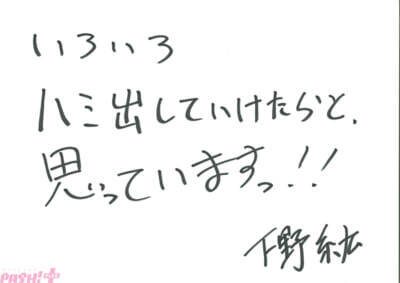 いろいろ
ハミ出していけたらと、
思っていますっ!!
下野紘
PASH!+